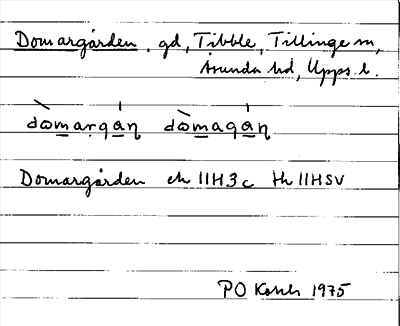 Domargården, gd, Tibble, Tillinge sn,
Åsunda hd, Upps. l.
dòmargán dòmagán
Domargården ek 11H3c th 11HSV
PO 1975